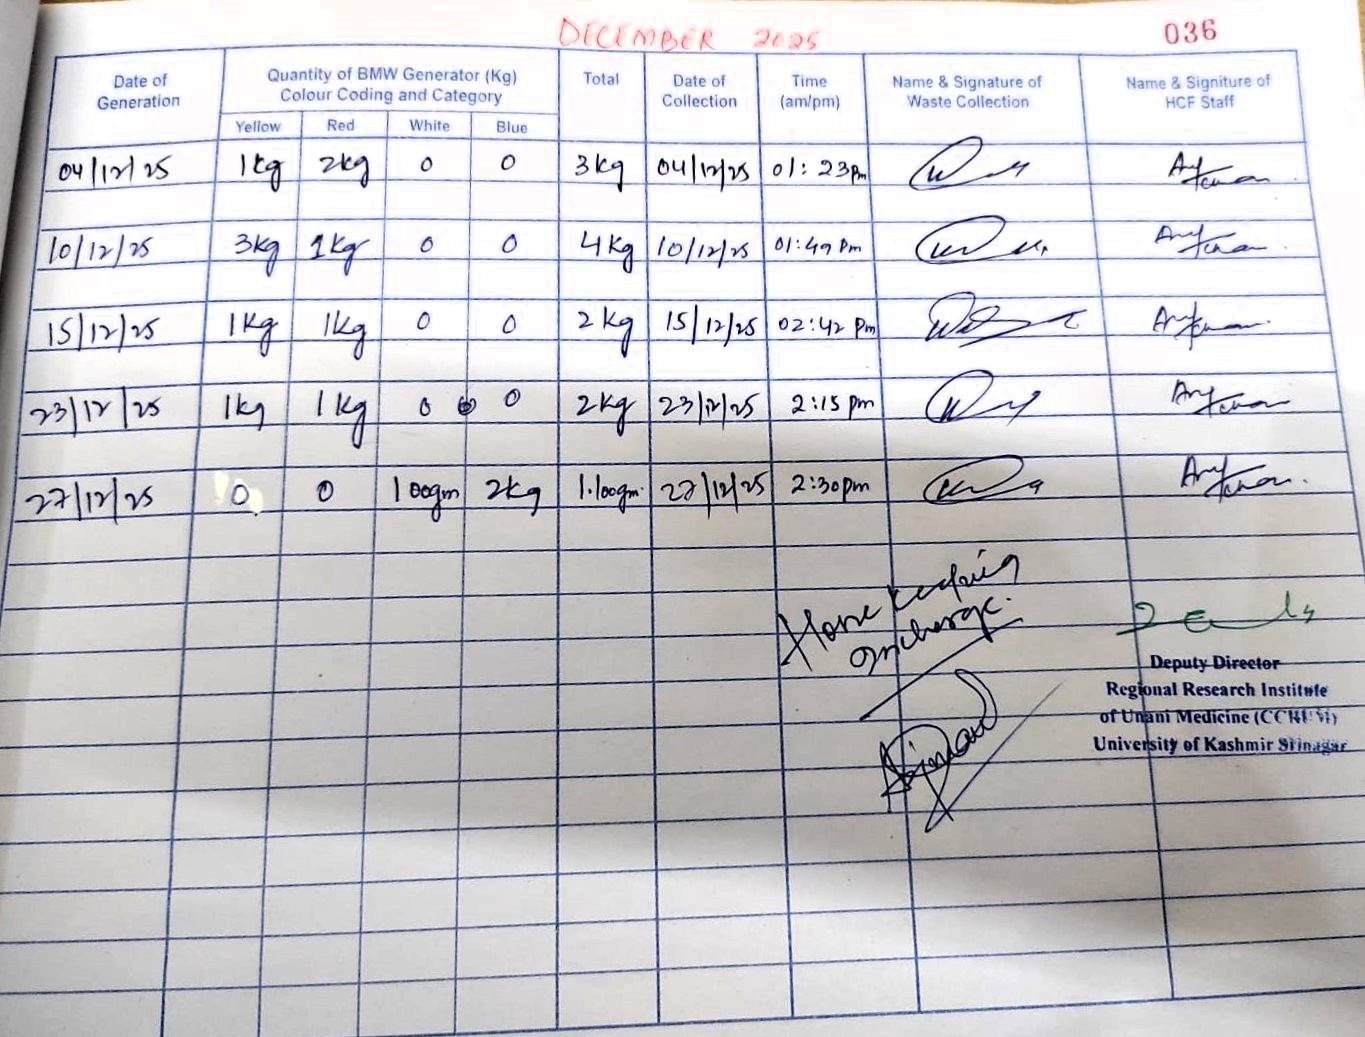 DECEMBER 2025
036
Date of Generation Quantity of BMW Generator (Kg) Colour Coding and Category Total Date of Collection Time (am/pm) Name & Signature of Waste Collection Name & Signiture of HCF Staff
Yellow Red White Blue
04/12/25 1kg 2kg 0 0 3kg 04/12/25 01:23Pm
10/12/25 3kg 1kg 0 0 4kg 10/12/25 01:49 Pm
15/12/25 1kg 1kg 0 0 2kg 15/12/25 02:42 Pm
23/12/25 1kg 1kg 0 0 2kg 23/12/25 2:15 pm
27/12/25 0 0 100gm 2kg 1.100gm. 27/12/25 2:30pm
House keeping
Incharge.
Deputy Director
Regional Research Institute
of Unani Medicine (CCRUM)
University of Kashmir Srinagar